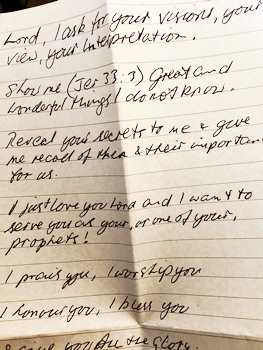 Lord, I ask for your visions, your
view, your interpretation.
Show me (Jer 33:3) Great and
wonderful things I do not know.
Reveal your secrets to me & give
me recall of them & their importance
for us.
I just love you Lord and I want to
serve you as your, or one of your,
prophets!
I praise you, I worship you
I honour you, I bless you
you all the glory.